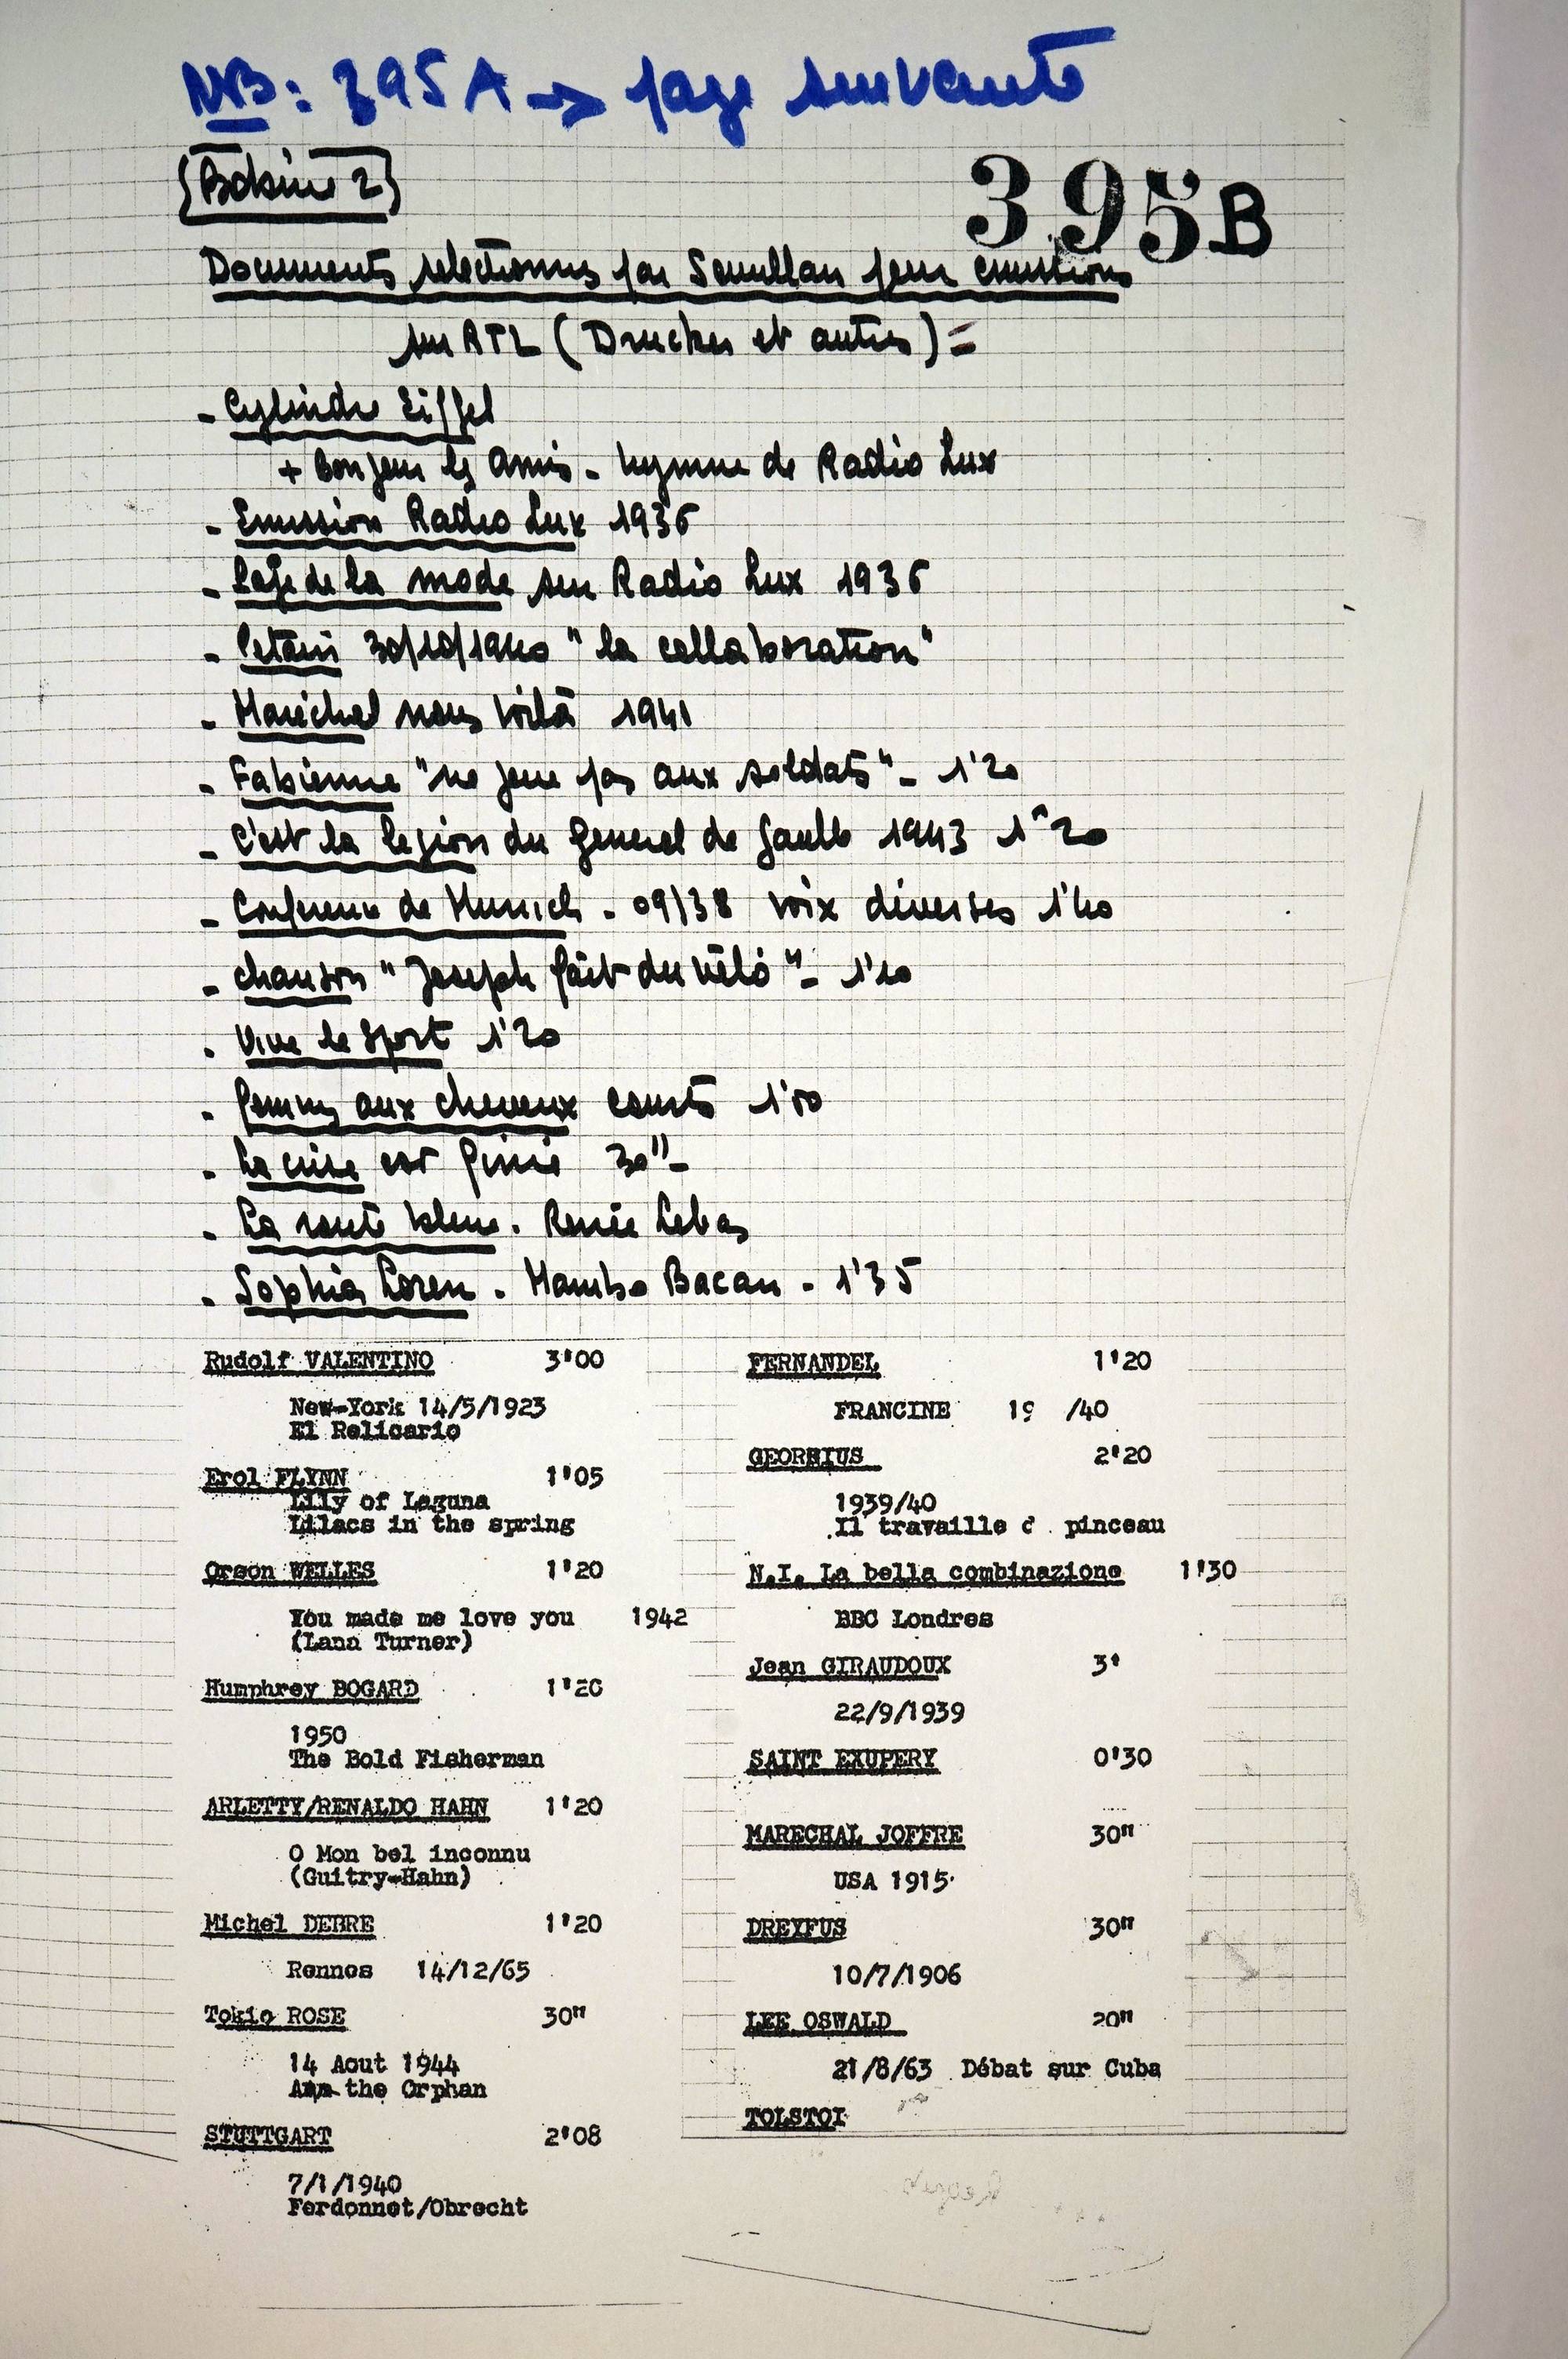 NB: 395A → page suivante
[Bobine 2]
395B
Documents selectionnes par Sevillan pour emissions
sur RTL (Drucker et autres) =
- Cylindre Eiffel
+ Bonjour les Amis - hymne de Radio Lux
- Emission Radio Lux 1936
- Page de la mode sur Radio Lux 1936
- Petain 30/10/1940 "la collaboration"
- Maréchal nous voilà 1941
- Fabienne "ne joue pas aux soldats" - 1'20
- C'est la legion du General de Gaulle 1943 1'20
- Conference de Munich - 09/38 voix diverses 1'40
- chanson "Joseph fait du vélo" - 1'10
- Vive le Sport 1'20
- femmes aux cheveux courts 1'50
- La crise est finie 30" -
- La route bleue. Renée Lebas
- Sophia Loren. Mambo Bacan - 1'35
Rudolf VALENTINO 3'00
New-York 14/5/1923
El Relicario
Erol FLYNN 1'05
Lily of Laguna
Lilacs in the spring
Orson WELLES 1'20
You made me love you 1942
(Lana Turner)
Humphrey BOGARD 1'20
1950
The Bold Fisherman
ARLETTY/RENALDO HAHN 1'20
O Mon bel inconnu
(Guitry-Hahn)
Michel DEBRE 1'20
Rennes 14/12/65
Tokio ROSE 30"
14 Aout 1944
Ann the Orphan
STUTTGART 2'08
7/1/1940
Ferdonnet/Obrecht
FERNANDEL 1'20
FRANCINE 19 /40
GEORGIUS 2'20
1939/40
Il travaille d pinceau
N.I. La bella combinazione 1'30
BBC Londres
Jean GIRAUDOUX 3'
22/9/1939
SAINT EXUPERY 0'30
MARECHAL JOFFRE 30"
USA 1915
DREYFUS 30"
10/7/1906
LEE OSWALD 20"
21/8/63 Débat sur Cuba
TOLSTOI